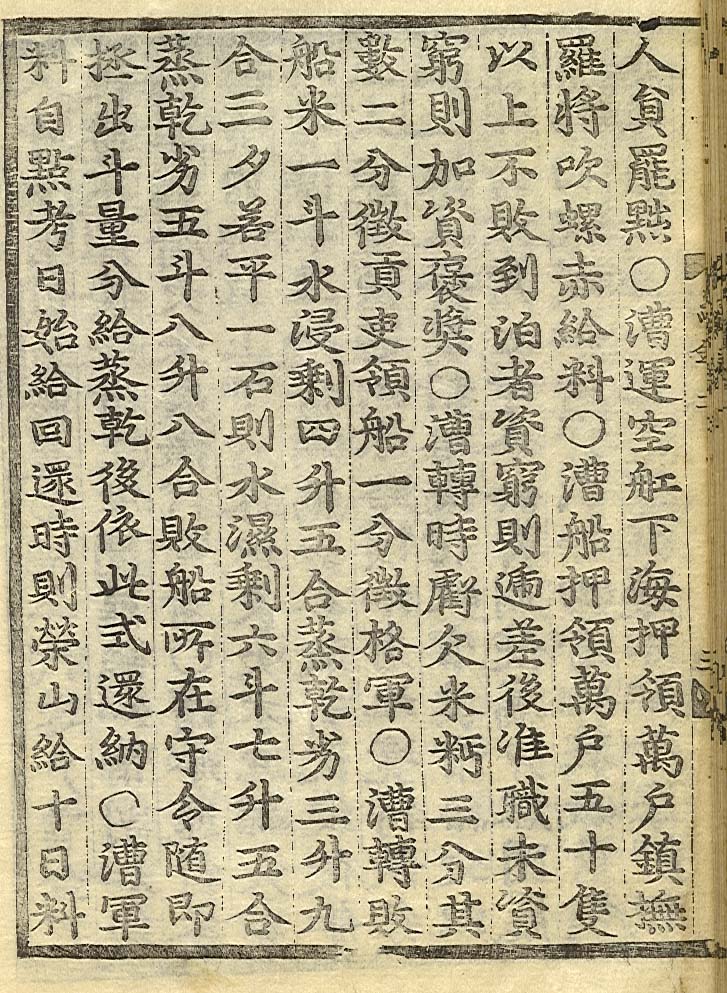 人貟罷黜○漕運空舡下海押領萬戶鎮撫
羅將吹螺赤給料○漕船押領萬戶五十隻
以上不敗到泊者資窮則遞差後准職未資
窮則加資褒奬○漕轉時虧欠米糆三分其
數二分徵貢吏領船一分徵格軍○漕轉敗
船米一斗水浸剩四升五合蒸乾劣三升九
合三夕若平一石則水濕剩六斗七升五合
蒸乾劣五斗八升八合敗船所在守令随即
拯出斗量分給蒸乾後依此式還納○漕軍
料自點考日始給回還時則榮山給十日料